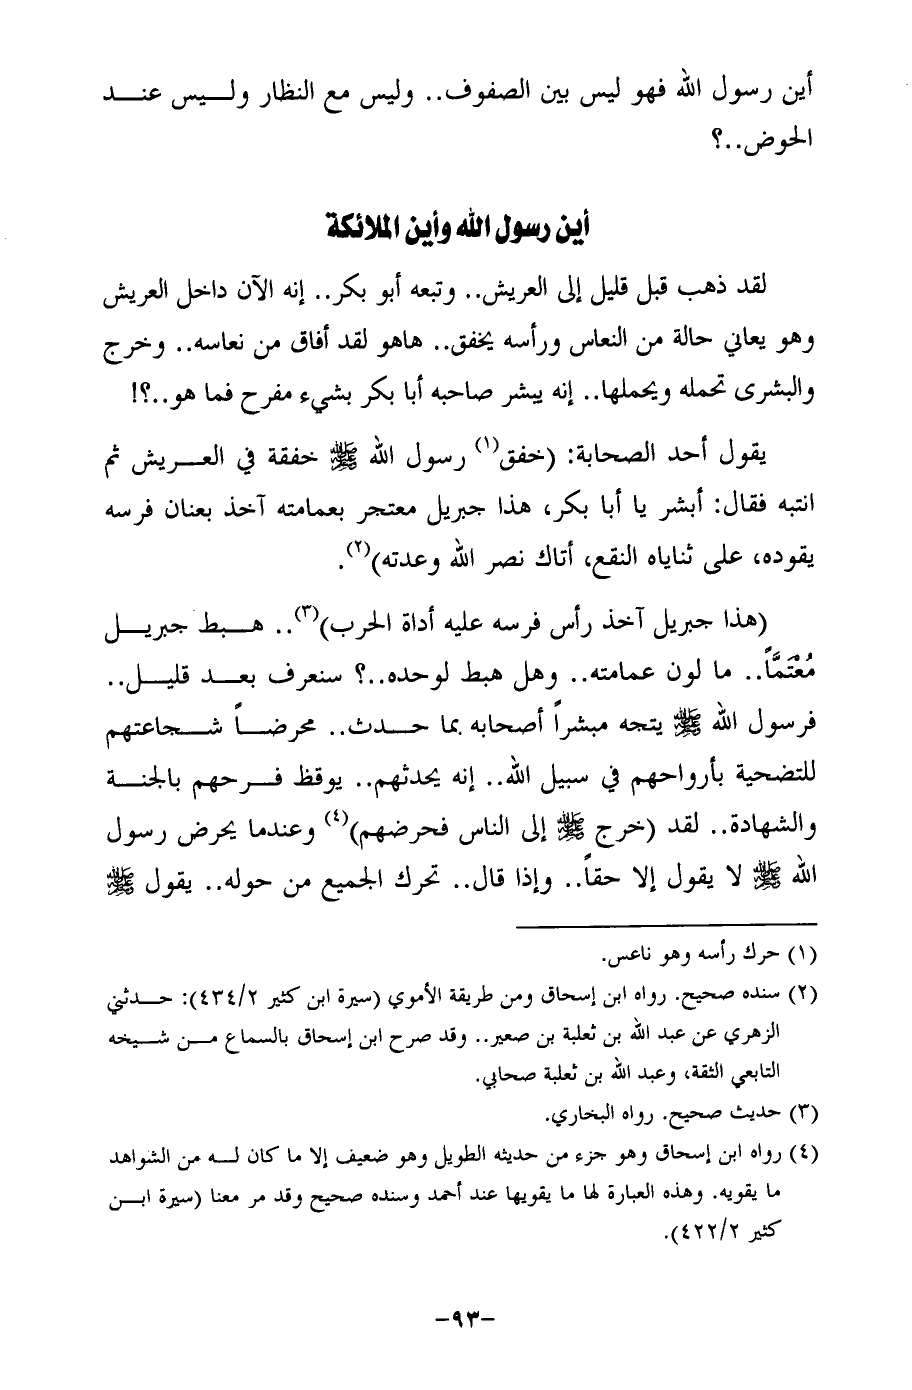 أين رسول الله فهو ليس بين الصفوف.. وليس مع النظار وليس عند
الحوض..؟
أين رسول الله وأين الملائكة
لقد ذهب قبل قليل إلى العريش.. وتبعه أبو بكر.. إنه الآن داخل العريش
وهو يعاني حالة من النعاس ورأسه يخفق.. هاهو لقد أفاق من نعاسه.. وخرج
والبشرى تحمله ويحملها.. إنه يبشر صاحبه أبا بكر بشيء مفرح فما هو..؟!
يقول أحد الصحابة: (خفق(١) رسول الله ﷺ خفقة في العريش ثم
انتبه فقال: أبشر يا أبا بكر، هذا جبريل معتجر بعمامته آخذ بعنان فرسه
يقوده، على ثناياه النقع، أتاك نصر الله وعدته)(٢).
(هذا جبريل آخذ رأس فرسه عليه أداة الحرب)(٣).. هبط جبريل
مُعْتَمَّاً.. ما لون عمامته.. وهل هبط لوحده..؟ سنعرف بعد قليل..
فرسول الله ﷺ يتجه مبشراً أصحابه بما حدث.. محرضاً شجاعتهم
للتضحية بأرواحهم في سبيل الله.. إنه يحدثهم.. يوقظ فرحهم بالجنة
والشهادة.. لقد (خرج ﷺ إلى الناس فحرضهم)(٤) وعندما يحرض رسول
الله ﷺ لا يقول إلا حقاً.. وإذا قال.. تحرك الجميع من حوله.. يقول ﷺ
(١) حرك رأسه وهو ناعس.
(٢) سنده صحيح. رواه ابن إسحاق ومن طريقة الأموي (سيرة ابن كثير ٤٣٤/٢): حدثني
الزهري عن عبد الله بن ثعلبة بن صعير.. وقد صرح ابن إسحاق بالسماع من شيخه
التابعي الثقة، وعبد الله بن ثعلبة صحابي.
(٣) حديث صحيح. رواه البخاري.
(٤) رواه ابن إسحاق وهو جزء من حديثه الطويل وهو ضعيف إلا ما كان له من الشواهد
ما يقويه. وهذه العبارة لها ما يقويها عند أحمد وسنده صحيح وقد مر معنا (سيرة ابن
كثير ٤٢٢/٢).
-٩٣-